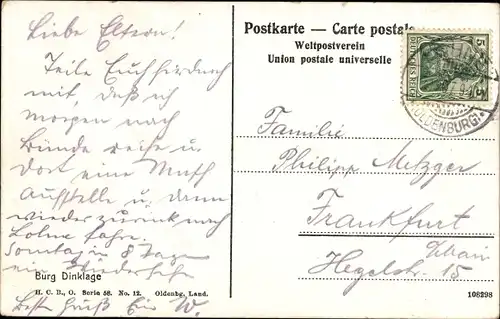 Liebe Eltern!
Teile Euch hierdurch
mit, daß ich
morgen nach
Bünde reise u.
dort eine
Aufstelle u. dann
wieder zurück nach
Lohne fahre.
Sonntag in 8 Tagen
Burg Dinklage
H. C. B., O. Serie 58. No. 12. Oldenbg. Land.
Besten Gruß Eur W.
Postkarte — Carte postale
Weltpostverein
Union postale universelle
5 5
DEUTSCHES REICH
(OLDENBURG)
Familie
Philipp Metzger
Frankfurt
Main
Hegelstr. 15
108298